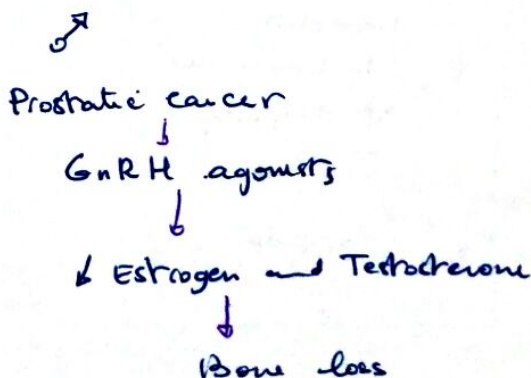 ♂
Prostatic cancer
↓
GnRH agonists
↓
↓ Estrogen and Testosterone
↓
Bone loss